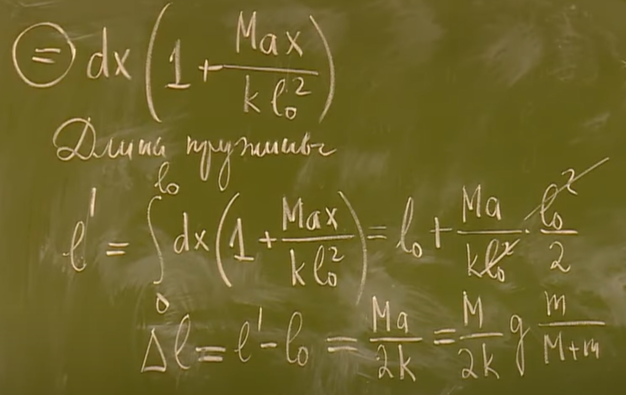 = dx (1 + Max / k l₀²)
Длина пружины
l' = ∫₀^l₀ dx (1 + Max / k l₀²) = l₀ + Ma / k l₀² · l₀² / 2
Δl = l' - l₀ = Ma / 2k = M / 2k g m / M+m